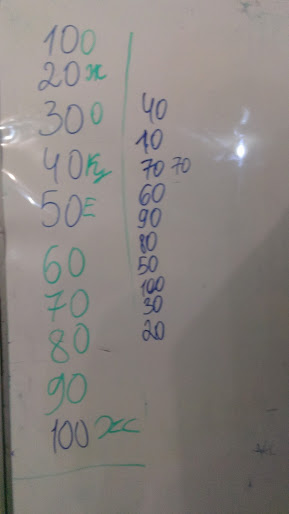 10 О
20 ж
30 О
40 Ку
50 Е
60
70
80
90
100 жс
40
10
70 70
60
90
80
50
100
30
20